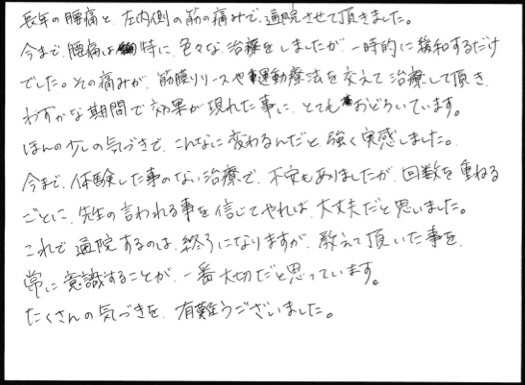 長年の腰痛と、左内側の筋の痛みで、通院させて頂きました。
今まで、腰痛は特に色々な治療をしましたが、一時的に緩和するだけ
でした。その痛みが、筋膜リリースや運動療法を交えて治療して頂き、
わずかな期間で効果が現れた事に、とてもおどろいています。
ほんの少しの気づきで、こんなに変わるんだと強く実感しました。
今まで、体験した事のない治療で、不安もありましたが、回数を重ねる
ごとに、先生の言われる事を信じてやれば、大丈夫だと思いました。
これで通院するのは、終うになりますが、教えて頂いた事を、
常に意識することが、一番大切だと思っています。
たくさんの気づきを、有難うございました。